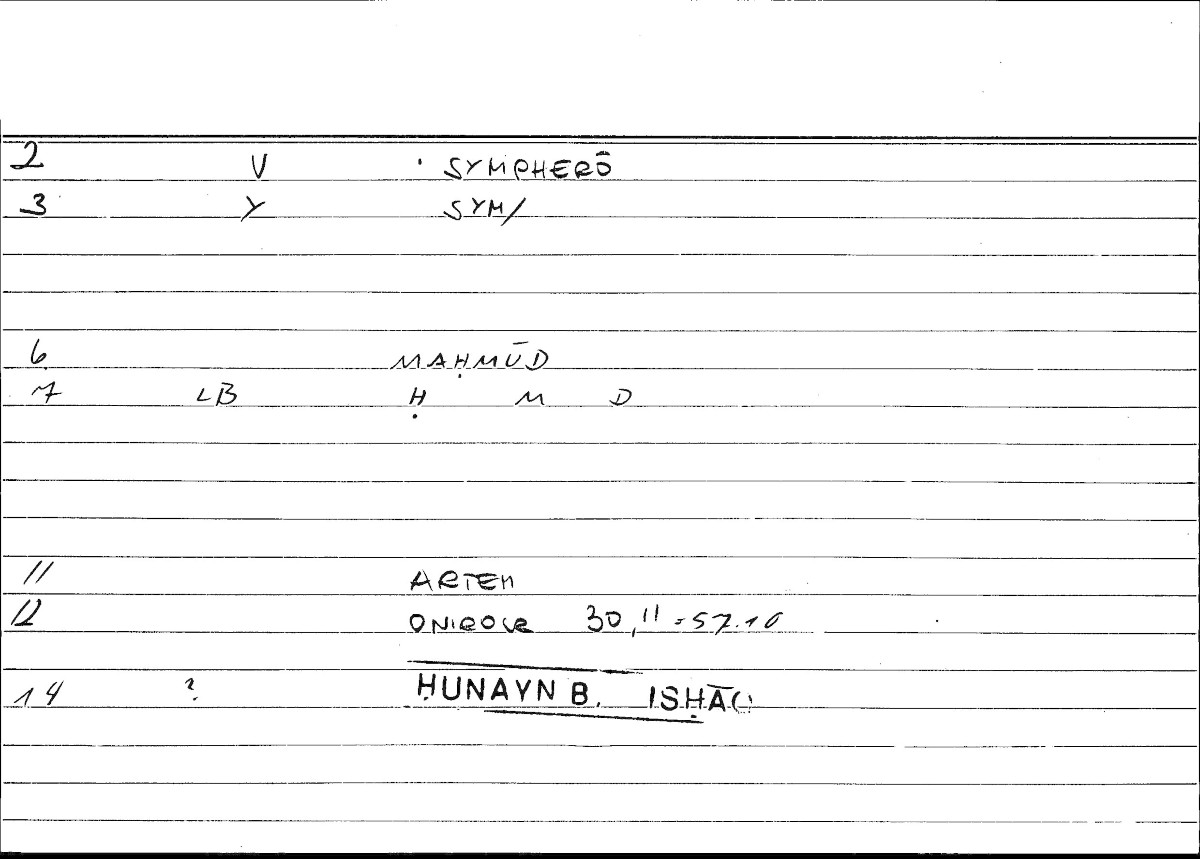 2 V SYMPHERŌ
3 Y SYM/
6 MAḤMŪD
7 LB Ḥ M D
11 ARTEM
12 ONIROCR 30,11=57.10
14 ? ḤUNAYN B. ISḤĀQ